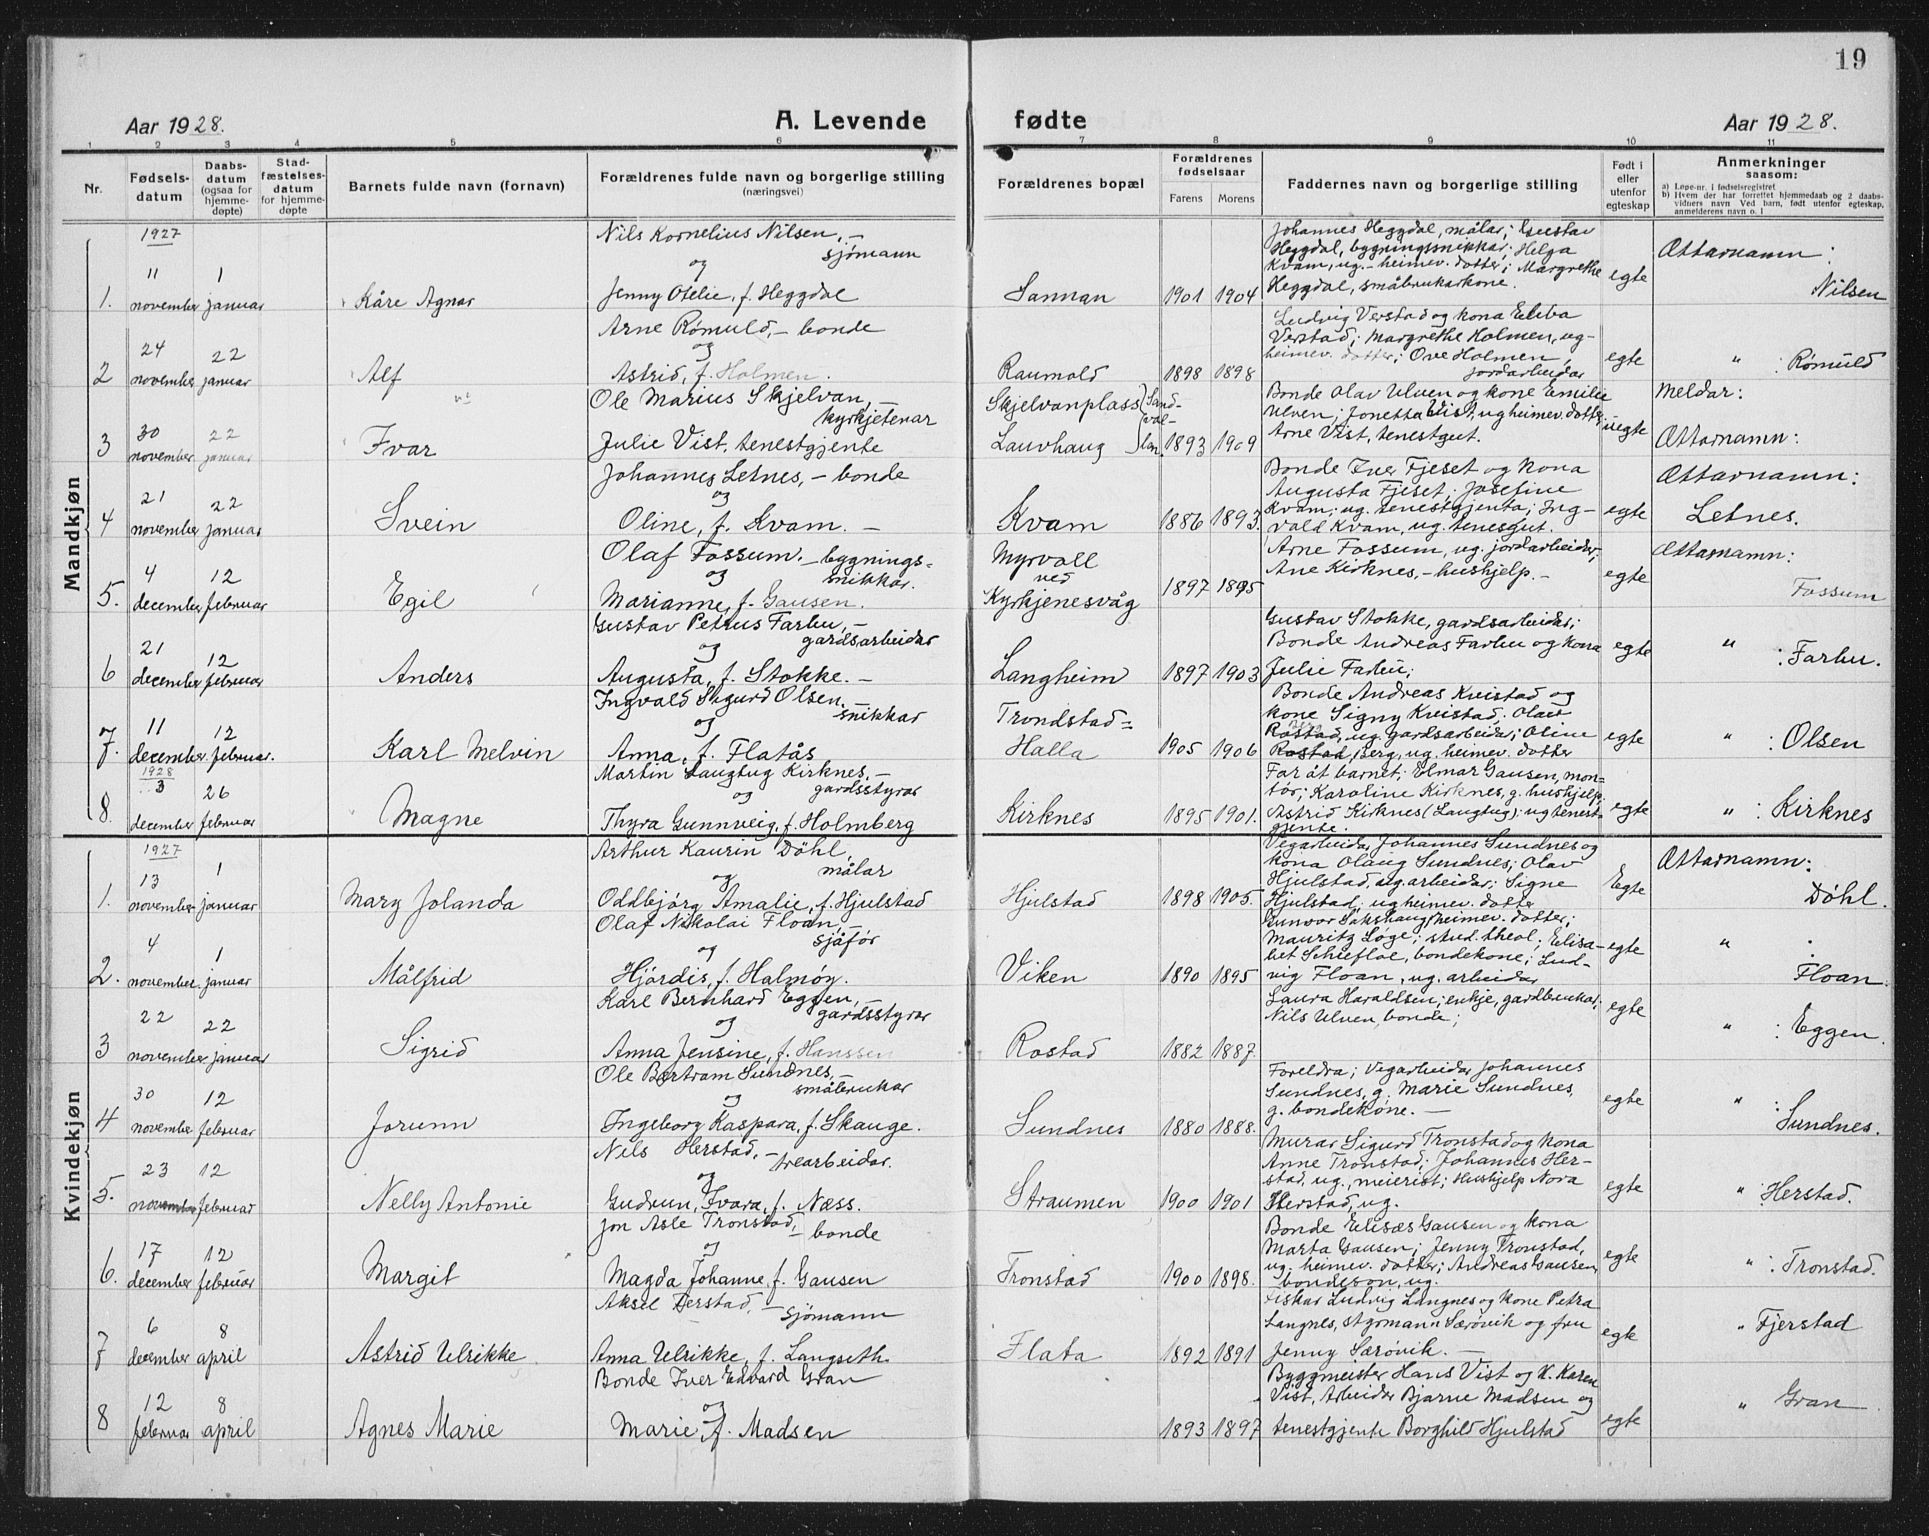 19
Aar 1928.
A. Levende
fødte
Aar 1928.
1 2 3 4 5 6 7 8 9 10 11
Nr.
Fødsels-
datum
Daabs-
datum
(ogsaa for
hjemme-
døpte)
Stad-
fæstelses-
datum
for hjemme-
døpte
Barnets fulde navn (fornavn)
Forældrenes fulde navn og borgerlige stilling
(næringsvei)
Forældrenes bopæl
Forældrenes
fødselsaar
Farens Morens
Faddernes navn og borgerlige stilling
Født i
eller
utenfor
egteskap
Anmerkninger
saasom:
a) Løpe-nr. i fødselsregistret
b) Hvem der har forrettet hjemmedaab og 2 daabs-
vidners navn Ved barn, født utenfor egteskap,
anmelderens navn o. l
Mandkjøn
1927
1. 11 november 1 januar
Kåre Agnar
Nils Kornelius Nilsen, –
sjømann
og
Jenny Otelie, f. Heggdal
Sannan
1901 1904
Johannes Heggdal, målar; Gustav
Heggdal, bygningssnikkar; Helga
Kvam, ug. – heimev. dotter; Margrethe
Heggdal, småbrukarkone.
egte
Ættarnamn:
Nilsen
2 24 november 22 januar
Alf
Arne Rømuld, – bonde
og
Astrid, f. Holmen.
Raumold
1898 1898
Ludvig Verstad og kona
Verstad; Margrethe Holmen, ug-
heimev. dotter; Ove Holmen,
jordarbeidar
egte
" : Rømuld
3 30 november 22 januar
Ivar
Ole Marius Skjelvan, –
kyrkjetenar
Julie Vist, tenestgjente
Skjelvanplass } Sand-
Lauvhaug } lan.
1893 1909
Bonde Olav Ulven og kone Emilie
Ulven; Jonetta Vist, ug heimev. dotter
Arne Vist, tenestgut.
uegte
Meldar:
Ættarnamn:
4 21 november 22 januar
Svein
Johannes Letnes, – bonde
og
Oline, f. Kvam. –
Kvam
1886 1893.
Bonde Iver Fjeset og kona
Augusta Fjeset; Josefine
Kvam; ug. tenestgjenta; Ing-
vald Kvam, ug. tenesgut.
egte
Ættarnamn:
Letnes.
5. 4 december 12 februar
Egil
Olaf Fossum. – bygnings-
snikkar.
og
Marianne, f. Gausen.
Myrvoll
ved
Kyrkjenesvåg
1897 1895
Arne Fossum, ug. jordarbeider;
Ane Kirknes, – hushjelp. –
egte
Ættarnamn:
Fossum
6 21 december 12 februar
Anders
Gustav Petrus Farbu, –
gardsarbeidar
og
Augusta, f. Stokke. –
Langheim
1897 1903
Gustav Stokke, gardsarbeidar;
Bonde Andreas Farbu og kona
Julie Farbu;
egte
" : Farbu.
7. 11 december 12 februar.
Karl Melvin
Ingvald Sigurd Olsen,
snikkar
og
Anna, f. Flatås
Trondstad=
Halla
1905 1906
Bonde Andreas Kvistad og
kone Signy Kvistad; Olav
Røstad, ug. gardsarbeidar; Oline
Rostad Berg, ug. heimev. dotter
egte
" : Olsen
1928
8. 3 december 26 februar
Magne
Martin Laugtug Kirknes, –
gardsstyrar
og
Thyra Gunnveig, f. Holmberg
Kirknes
1895 1901.
Far åt barnet; Elmar Gausen, mon-
tør; Karoline Kirknes, g. hushjelp;
Astrid Kirknes (Laugtug); ug tenest-
gjente.
egte
" : Kirknes
Kvindekjøn
1927
1. 13 november 1 januar
Mary Jolanda
Arthur Kaurin Döhl,
målar
og
Oddbjørg Amalie, f. Hjulstad
Hjulstad
1898 1905.
Vegarbeidar Johannes Sundnes og
kona Olaug Sundnes; Olav
Hjulstad, ug. arbeidar; Signe
Hjulstad; ug heimev. dotter
Egte
Ættarnamn:
Döhl.
2. 4 november 1 januar
Målfrid
Olaf Nikolai Floan, –
sjåfør
og
Hjördis, f. Halmöy.
Viken
1890 1895
Gunvor Sakshaug heimev. dotter;
Mauritz Løge; stud. theol; Elisa-
bet Schiefloe, bondekone; Lud-
vig Floan, ug. arbeidar
egte
" :
Floan.
3 22 november 22 januar
Sigrid
Karl Bernhard Eggen,
gardsstyrar
og
Anna Jensine, f. Hanssen
Rostad
1882 1887.
Laura Haraldsen; enkje, gardbrukar;
Nils Ulven, bonde;
egte
" : Eggen.
4 30 november 12 februar
Jorunn
Ole Bertram Sundnes, –
småbrukar
og
Ingeborg Kaspara, f. Skauge.
Sundnes
1880 1888.
Foreldra; Vegarbeidar Johannes
Sundnes, g. Marie Sundnes,
g. bondekone. –
egte
" :
Sundnes.
5. 23 november 12 februar
Nelly Antonie
Nils Herstad, –
trearbeidar.
og
Gudrun, Ivara, f. Næss.
Straumen
1900 1901
Murar Sigurd Tronstad og kona
Anne Tronstad; Johannes Her-
stad, ug., meierist; Hushjelp Nora
Herstad, ug.
egte
" : Herstad.
6. 17 december 12 februar
Margit
Jon Asle Tronstad, –
bonde
og
Magda Johanne, f. Gausen
Tronstad
1900 1898.
Bonde Elisæs Gausen og kona
Marta Gausen; Jenny Tronstad,
ug. heimev. dotter; Andreas Gausen,
bondeson, ug.
egte
" : Tronstad.
7 6 december 8 april
Astrid Ulrikke
Aksel Fjerstad, –
sjømann
Anna Ulrikke, f. Langseth
Flata
1892 1891
Fiskar Ludvig Langnes og kone Petra
Langnes, styrmann Særøvik og fru
Jenny Særøvik. –
egte
" Fjerstad
8 12 februar 8 april
Agnes Marie
Bonde Iver Edvard Gran
og
Marie, f. Madsen
1893 1897
Byggmeister Hans Vist og k. Karen
Vist, Arbeidar Bjarne Madsen og
tenestgjente Borghild Hjulstad
egte
" Gran